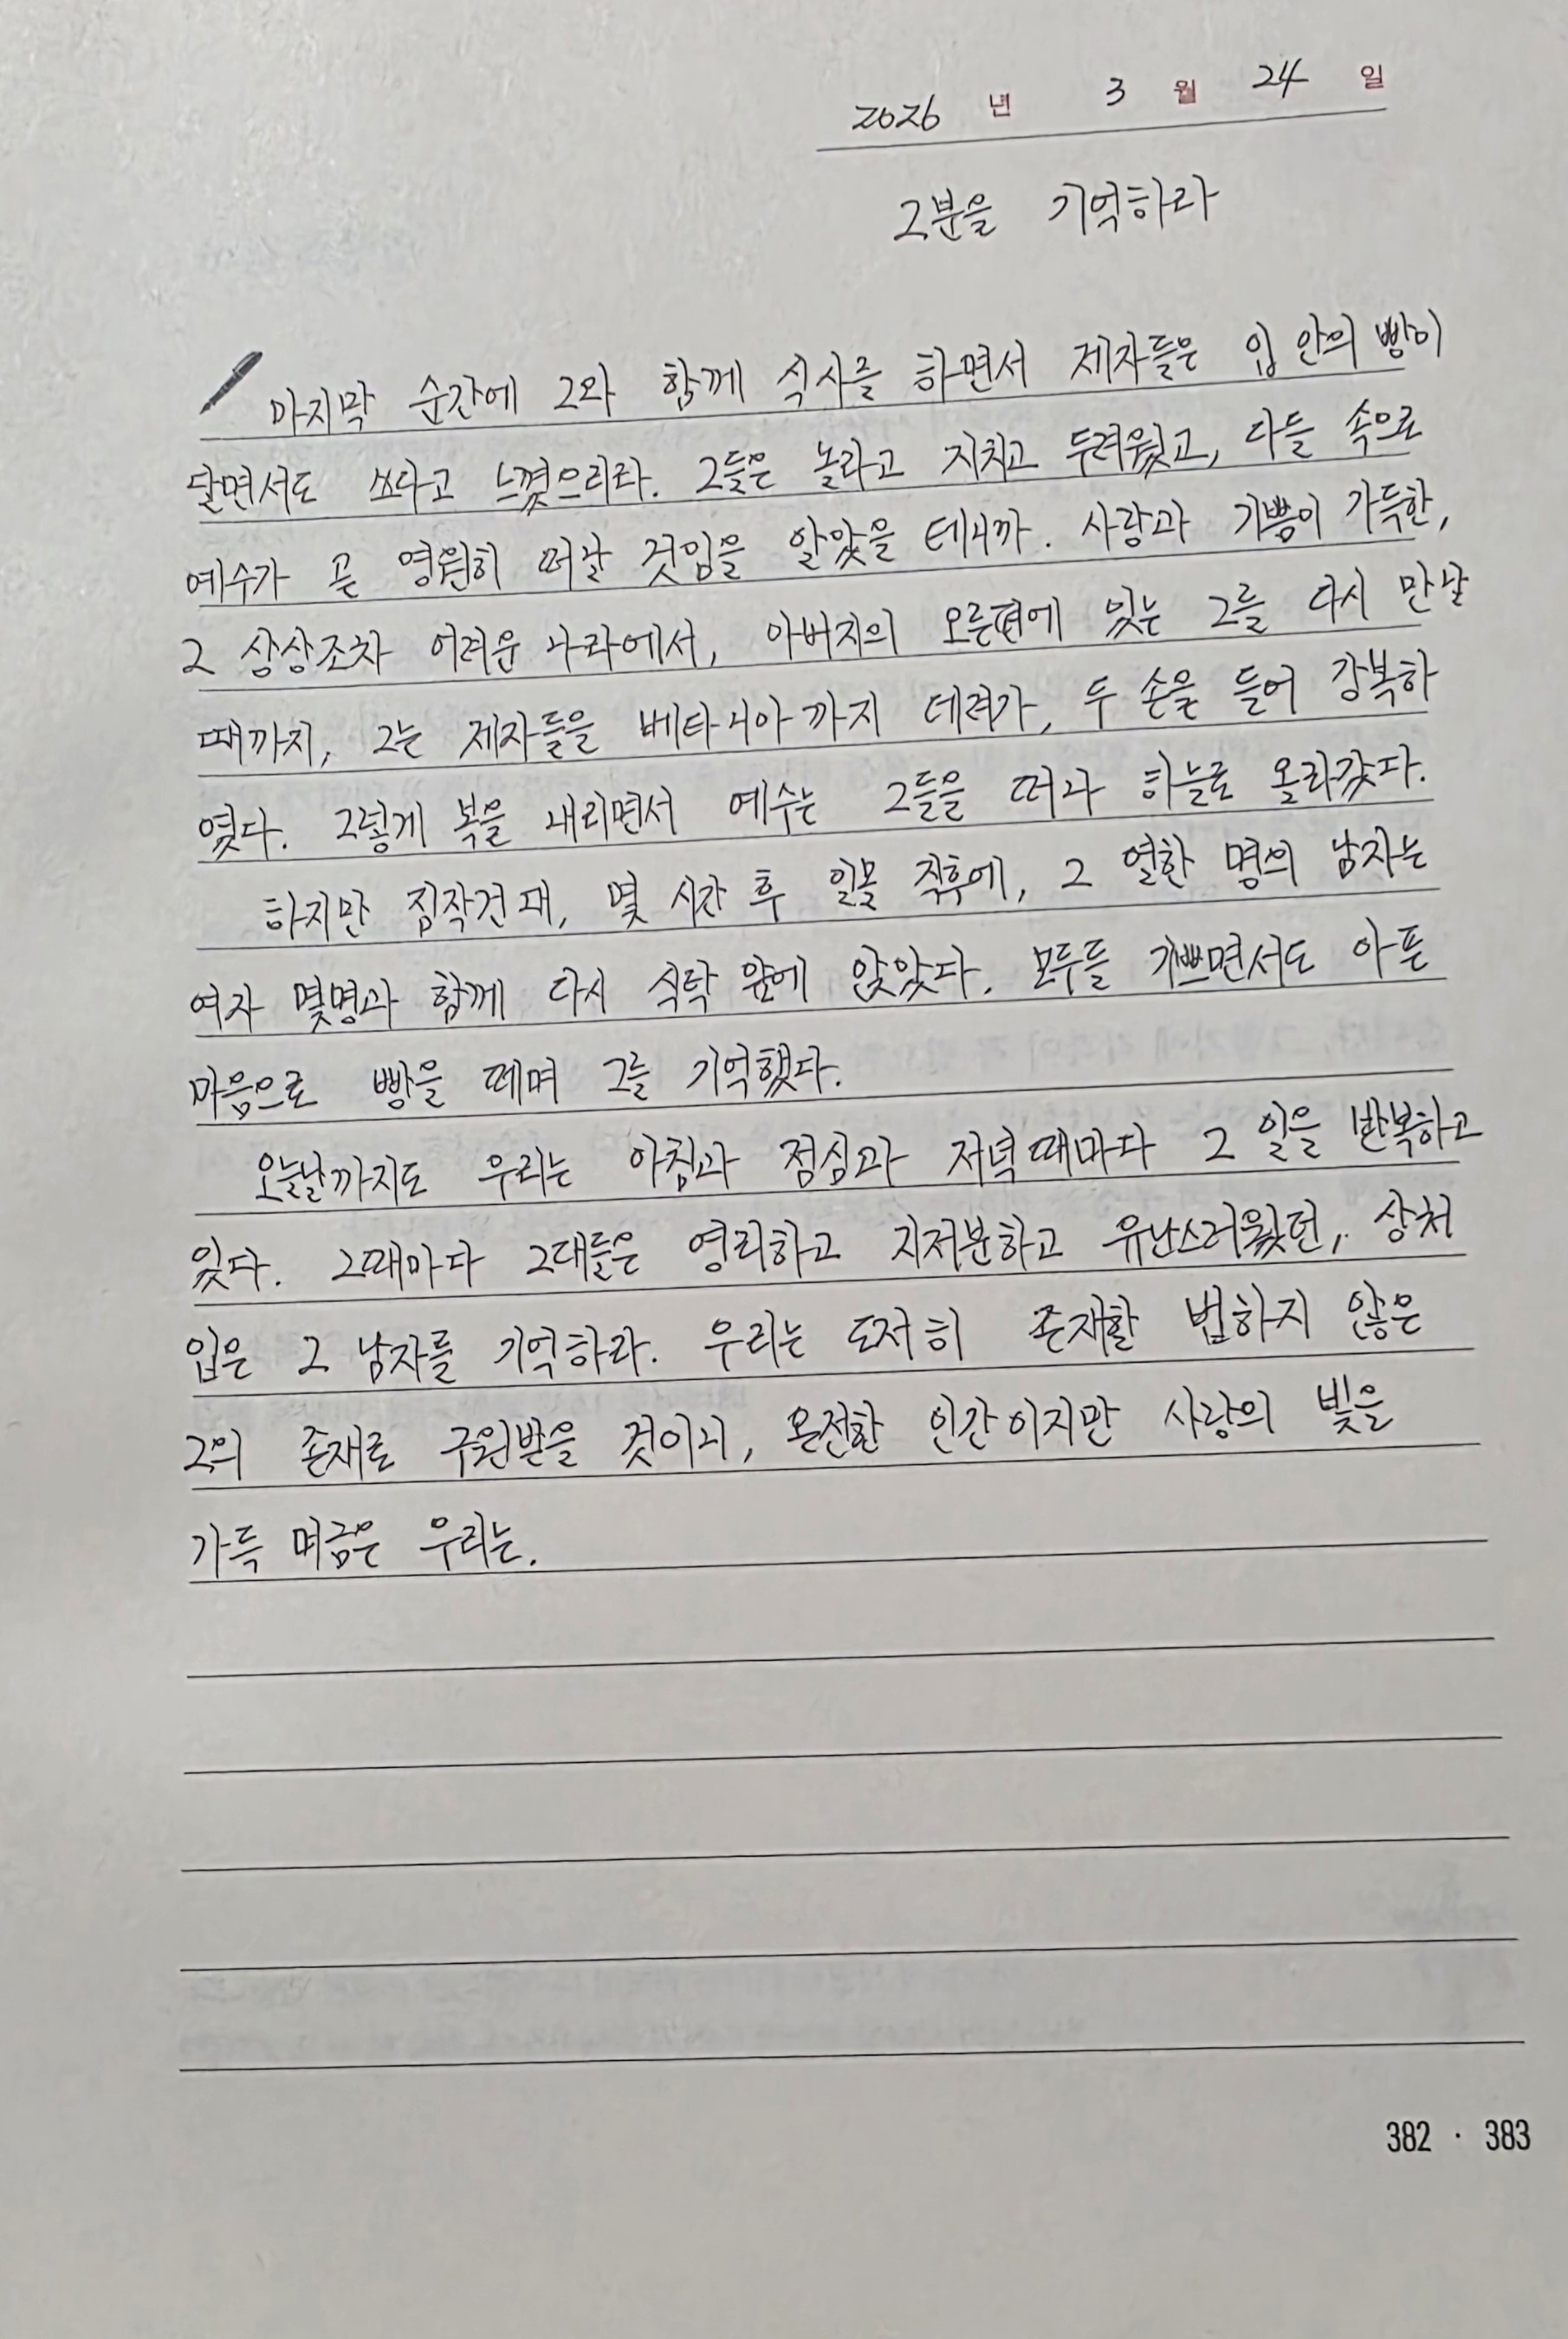 2026 년 3 월 24 일
그분을 기억하라
마지막 순간에 그와 함께 식사를 하면서 제자들은 입 안의 빵이
달면서도 쓰다고 느꼈으리라. 그들은 놀라고 지치고 두려웠고, 다들 속으로
예수가 곧 영원히 떠날 것임을 알았을 테니까. 사랑과 기쁨이 가득한,
그 상상조차 어려운 나라에서, 아버지의 오른편에 있는 그를 다시 만날
때까지, 그는 제자들을 베타니아까지 데려가, 두 손을 들어 강복하
였다. 그렇게 복을 내리면서 예수는 그들을 떠나 하늘로 올라갔다.
하지만 짐작건대, 몇 시간 후 일몰 직후에, 그 열한 명의 남자는
여자 몇명과 함께 다시 식탁 앞에 앉았다. 모두들 기쁘면서도 아픈
마음으로 빵을 떼며 그를 기억했다.
오늘날까지도 우리는 아침과 점심과 저녁때마다 그 일을 반복하고
있다. 그때마다 그대들은 영리하고 지저분하고 유난스러웠던, 상처
입은 그 남자를 기억하라. 우리는 도저히 존재할 법하지 않은
그의 존재로 구원받을 것이니, 온전한 인간이지만 사랑의 빛을
가득 머금은 우리는.
382 · 383